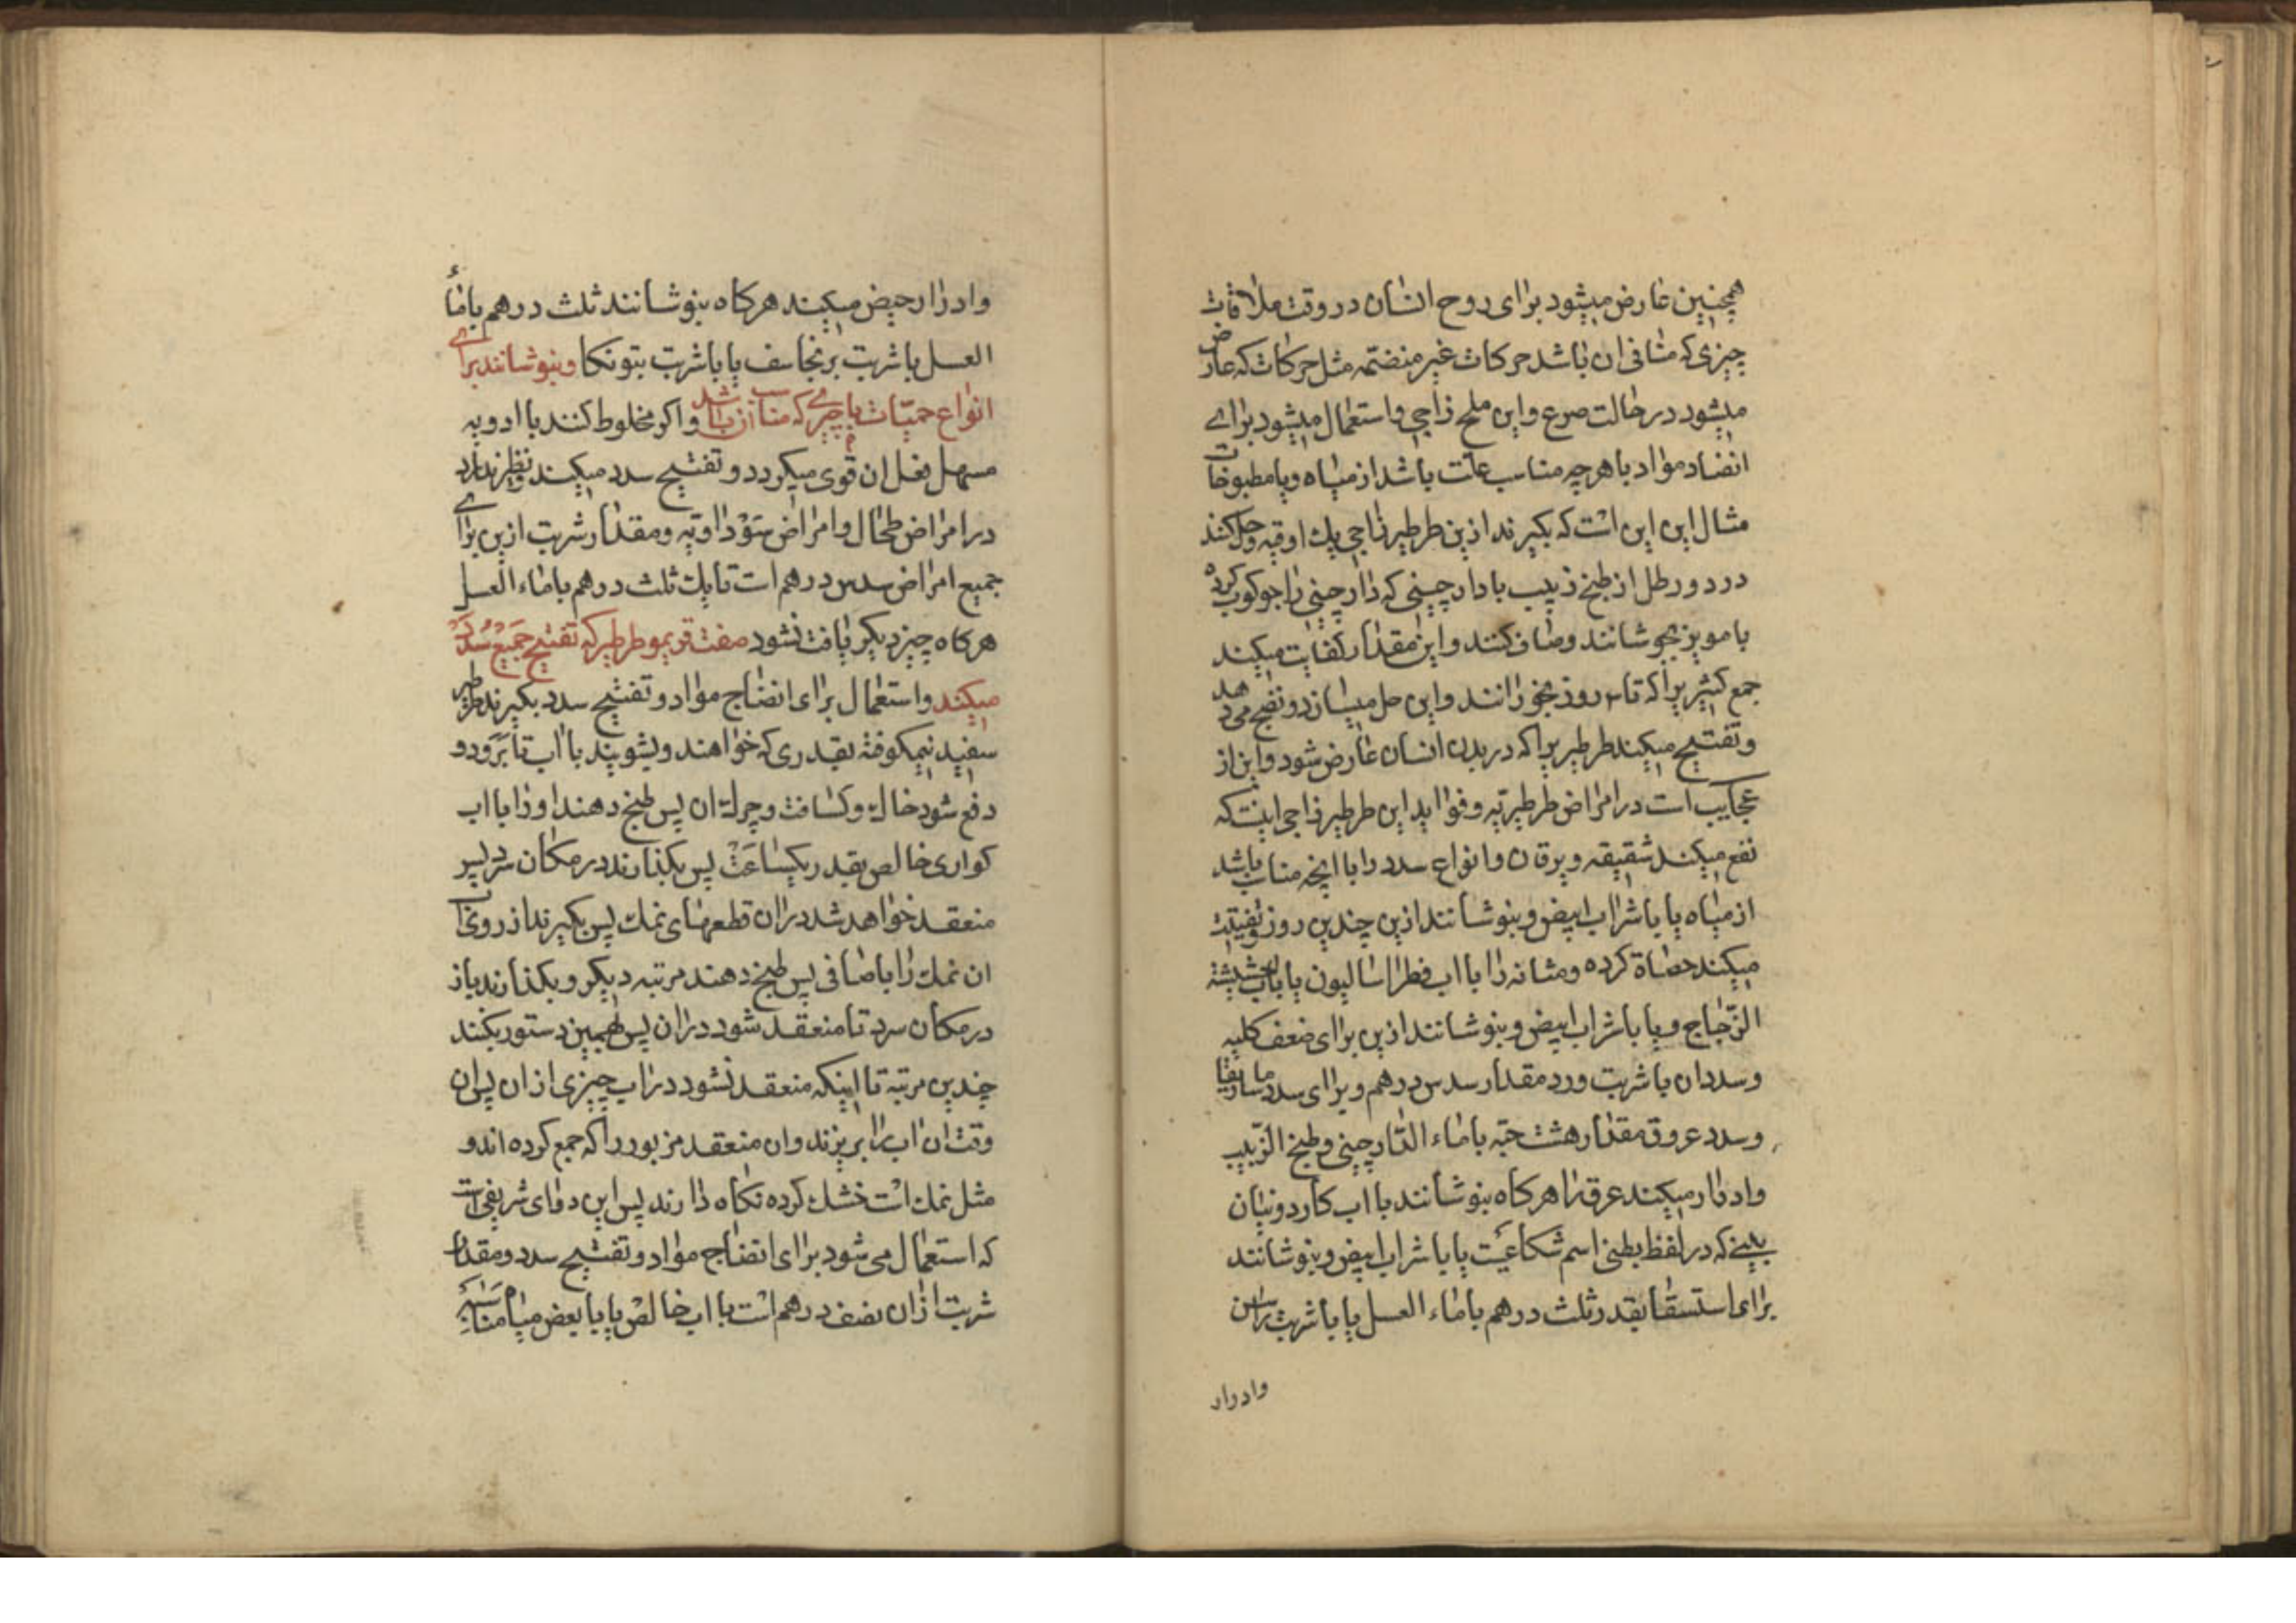 همچنین عارض میشود برای روح انسان در وقت ملاقات
چیزی که منافی ان باشد حرکات غیر منضمّه مثل حرکات که عارض
میشود در حالت صرع و این ملح زاجی و استعمال میشود برای
انضاد مواد با هرچه مناسب علّت باشد از میاه و یا مطبوخات
مثال این این است که بکیرند ازین طرطیر زاجی یك اوقیه و حل کنند
در دو رطل از طبخ زبیب با دار چینی که دار چینی را جوکوب کرده
با مویز بجوشانند و صاف کنند و این مقدار کفایت میکند
جمع کثیریرا که تا روز بخورانند و این حل میسازد و نضج میدهد
و تفتیح میکند طرطیریرا که در بدن انسان عارض شود و این از
عجایب است در امراض طرطیریّه و فواید این طرطیر زاجی اینست که
نفع میکند شقیقه و یرقان و انواع سدد را با انچه مناسب باشد
از میاه یا با شراب ابیض و بنوشانند ازین چندین روز و تفتیت
میکند حصاة کرده و مثانه را با اب فطراسالیون یا با اب حشیشة
الزّجاج و یا با شراب ابیض و بنوشانند ازین برای ضعف کلیه
و سدد ان با شربت ورد مقدار سدس درهم و برای سدد ماساریقا
و سدد عروق مقدار هشت حبّه با ماء الدّارچینی و طبخ الزّبیب
و ادرار میکند عرق را هرکاه بنوشانند با اب کاردونیان
یعنی که در لفظ بطنی اسم شکاعیست یا با شراب ابیض و بنوشانند
برای استسقا بقدر ثلث درهم با ماء العسل یا با شربت راسن
وادرار
و ادرار حیض میکند هرکاه بنوشانند ثلث درهم با ماء
العسل یا شربت برنجاسف یا با شربت بتونکا و بنوشانند برای
انواع حمیّات با چیزی که مناسب ان باشد و اکر مخلوط کنند با ادویه
مسهل فعل ان قوی میکردد و تفتیح سدد میکند و نظیر ندارد
در امراض طحال و امراض سوداویّه و مقدار شربت ازین برای
جمیع امراض سدس درهم است تا یك ثلث درهم با ماء العسل
هرکاه چیز دیکر یافت نشود صفت قریمو طرطیر که تفتیح جمیع سدد
میکند و استعمال برای انضاج مواد و تفتیح سدد بکیرند طرطیر
سفید نیمکوفته بقدری که خواهند و بشویند با اب تا برود و
دفع شود خاك و کثافت و چرك ان پس طبخ دهند او را با اب
کواری خالص بقدر یکساعت پس بکذارند در مکان سرد پس
منعقد خواهد شد در ان قطعهای نمك پس بکیرند از روی اب
ان نمك را با صافی پس طبخ دهند مرتبه دیکر و بکذارند باز
در مکان سرد تا منعقد شود در ان پس بهمین دستور بکنند
چندین مرتبه تا اینکه منعقد نشود در اب چیزی از ان پس ان
وقت ان اب را بریزند و ان منعقد مزبور را که جمع کرده اند و
مثل نمك است خشك کرده نکاه دارند پس این دوای شریفی است
که استعمال می شود برای انضاج مواد و تفتیح سدد و مقدار
شربت از ان نصف درهم است با اب خالص یا با بعض میاه مناسبه